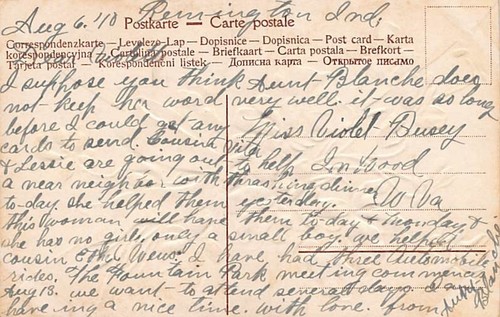 Aug 6. '10 Remington Ind.
Postkarte — Carte postale
Correspondenzkarte — Levelezo-Lap — Dopisnice — Dopisnica — Post card — Karta
korespondencyjna — Cartolina postale — Briefkaart — Carta postala — Brefkort —
Tarjeta postal — Korespondeneni listek — Дописна карта — Открытое письмо
I suppose you think Aunt Blanche does
not keep her word very well. it was so long
before I could get any
cards to send. Cousin Vita
& Lessie are going out to help
a near neighbor with thrashing dinner
to-day. she helped them yesterday.
this woman will have them to-day & monday &
she has no girls, only a small boy. we helped
cousin Ethel Wens. I have had three Automobile
rides. The Fountain Park meeting commences
Aug 13. we want to attend several days. I am
having a nice time. with love. from
Aunt Blanche
Miss Violet Busey
Inwood
W Va